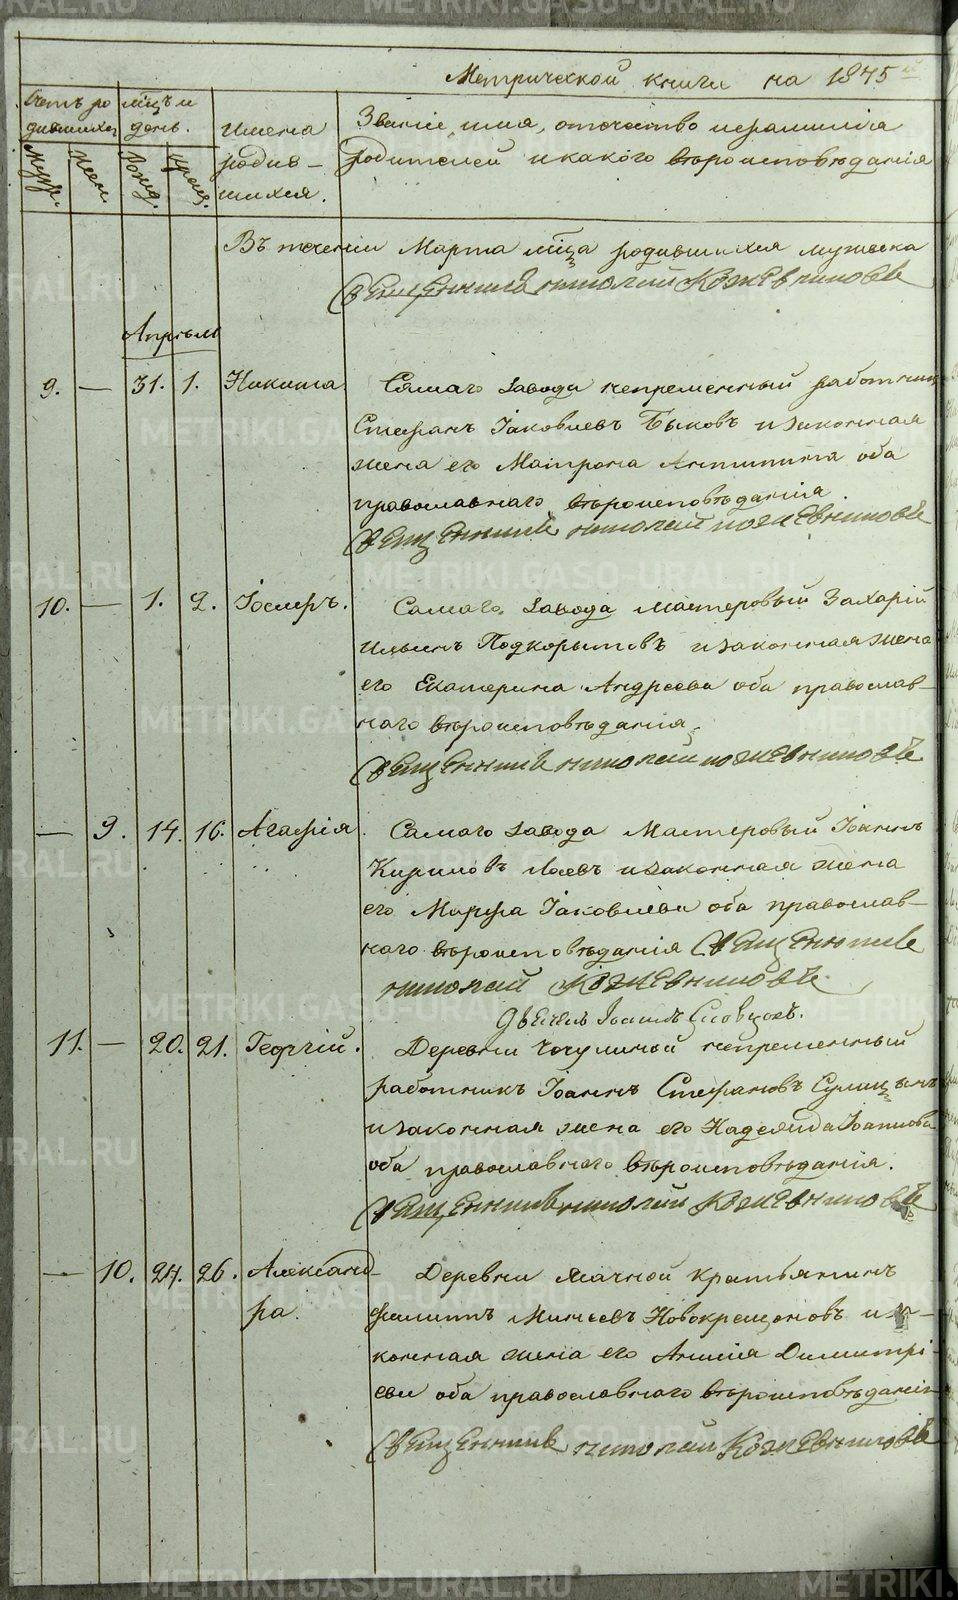 Метрической книги на 1845й
Счетъ родившихся
мѣсяцъ и день.
Муж.
Жен.
Рожд.
Крещ.
имена родив-
шихся.
Званіе, имя, отчество и фамилія
родителей и какого вѣроисповѣданія
Въ теченіи Марта мѣсца родившихся мужеска
Священникъ Николай Кожевниковъ
Апрѣль
9. — 31. 1. Никита Самаго завода непременный работник
Стефанъ Іаковлевъ Быковъ и законная
жена его Матрона Антипина оба
православнаго вѣроисповѣданія.
Священникъ Николай Кожевниковъ
10. — 1. 2. Іосифъ. Самаго завода мастеровый Захарій
Ильинъ Подкорытовъ и законная жена
его Екатерина Андреева оба православ-
наго вѣроисповѣданія.
Священникъ Николай Кожевниковъ
— 9. 14. 16. Агафія. Самаго завода Мастеровый Іоаннъ
Кириловъ и законная жена
его Марфа Іаковлева оба православ-
наго вѣроисповѣданія Священникъ
Николай Кожевниковъ
Іоаннъ Словцовъ.
11. — 20. 21. Георгій. Деревни непременный
работникъ Іоаннъ Стефановъ
и законная жена его Надежда Іоаннова
оба православнаго вѣроисповѣданія.
Священникъ Николай Кожевниковъ
— 10. 24. 26. Александ-
ра.
Деревни крестьянинъ
Филипъ Минеевъ Новокрещоновъ и за-
конная жена его Анисія Димитрі-
ева оба православнаго вѣроисповѣданія
Священникъ Николай Кожевниковъ
METRIKI.GASO-URAL.RU